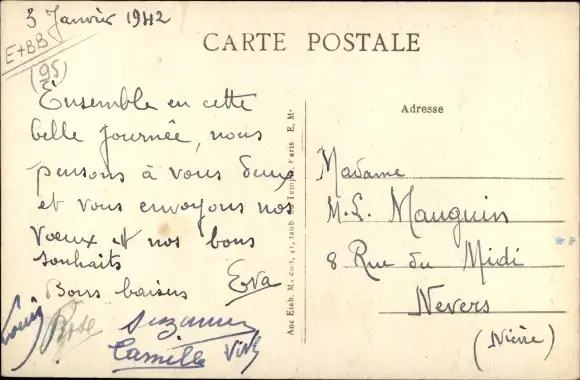 3 Janvier 1942
E+BB
(95)
CARTE POSTALE
Ensemble en cette
belle journée, nous
pensons à vous deux
et vous envoyons nos
vœux et nos bons
souhaits
Bons baisers
Eva
Louis Rose Suzanne
Camille
Adresse
Madame
M.L. Mauguin
8 Rue du Midi
Nevers
(Nièvre)
Anc Etab. 41, Temple Paris E. M.